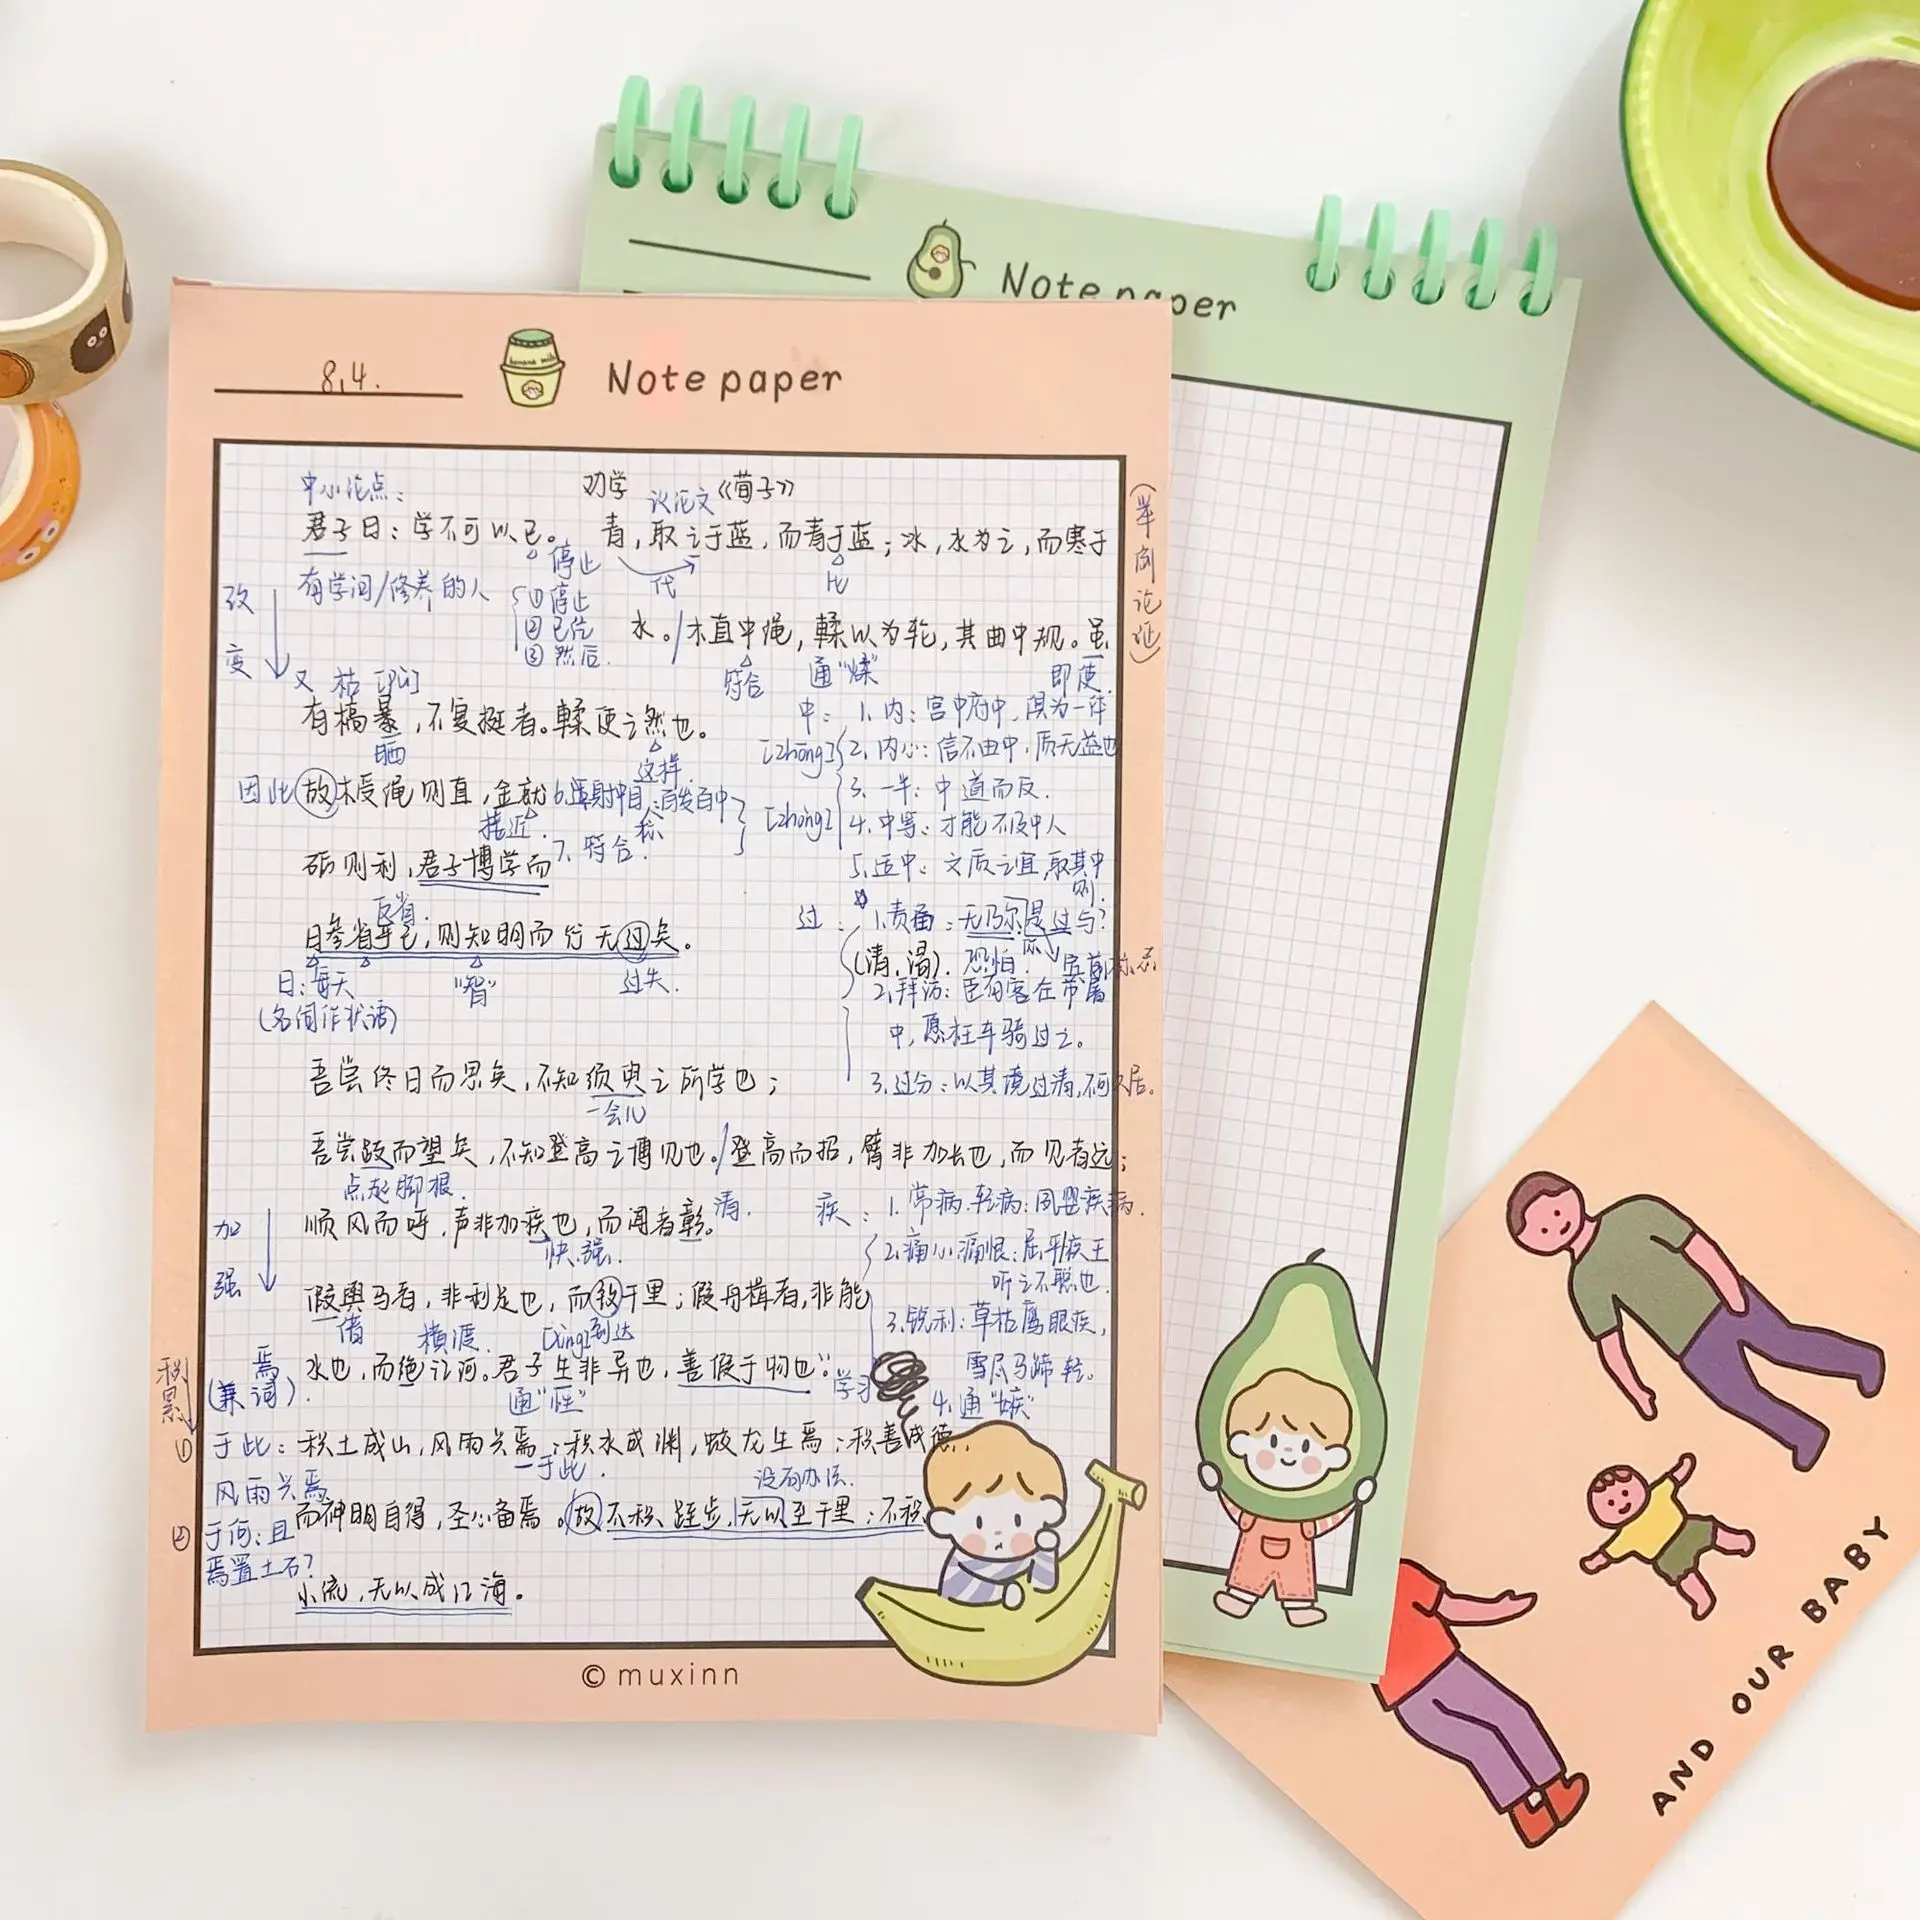 Note paper
8.4.
banana milk
Note paper
中心论点：
劝学
议论文《荀子》
(举例论证)
君子曰：学不可以已。 青，取之于蓝，而青于蓝；冰，水为之，而寒于
停止
代
比
有学问/修养的人
①停止
②已经
③然后.
改变
水。/木直中绳，輮以为轮，其曲中规。虽
符合
通"煣"
即使.
又
有槁暴，不复挺者。輮使之然也。
晒
这样.
中： 1.内：宫中府中，俱为一体
[zhōng] 2.内心：信不由中，质无益也
3.一半：中道而反.
[zhòng] 4.中等：才能不及中人
5.适中：文质之宜,取其中则.
因此 故木受绳则直，金就
6.射中目：百发百中
接近.
7.符合.
砺则利，君子博学而
反省.
日参省乎己，则知明而行无过矣。
日：每天
(名词作状语)
"智"
过失.
过： 1.责备：无乃尔是过与？
恐怕.
2.拜访：臣有客在市屠
中，愿枉车骑过之。
3.过分：以其境过清,不可久居。
吾尝终日而思矣，不知须臾之所学也；
一会儿
吾尝跂而望矣，不知登高之博见也。/登高而招，臂非加长也，而见者远；
点起脚根.
加强
顺风而呼，声非加疾也，而闻者彰。清.
快.强.
疾： 1.常病.轻病：
2.痛心.痛恨：屈平疾王
听之不聪也.
3.锐利：草枯鹰眼疾，
雪尽马蹄轻。
4.通"嫉"
假舆马者，非利足也，而致千里；假舟楫者,非能
借
横渡.
到达
水也，而绝江河。君子生非异也，善假于物也.
通"性"
学习
积累
焉
(兼词).
① 于此： 积土成山，风雨兴焉；积水成渊，蛟龙生焉；积善成德，
于此.
没有办法.
风雨兴焉
而神明自得，圣心备焉。故不积跬步，无以至千里；不积
② 于何：且
焉置土石？
小流，无以成江海。
© muxinn
AND OUR BABY